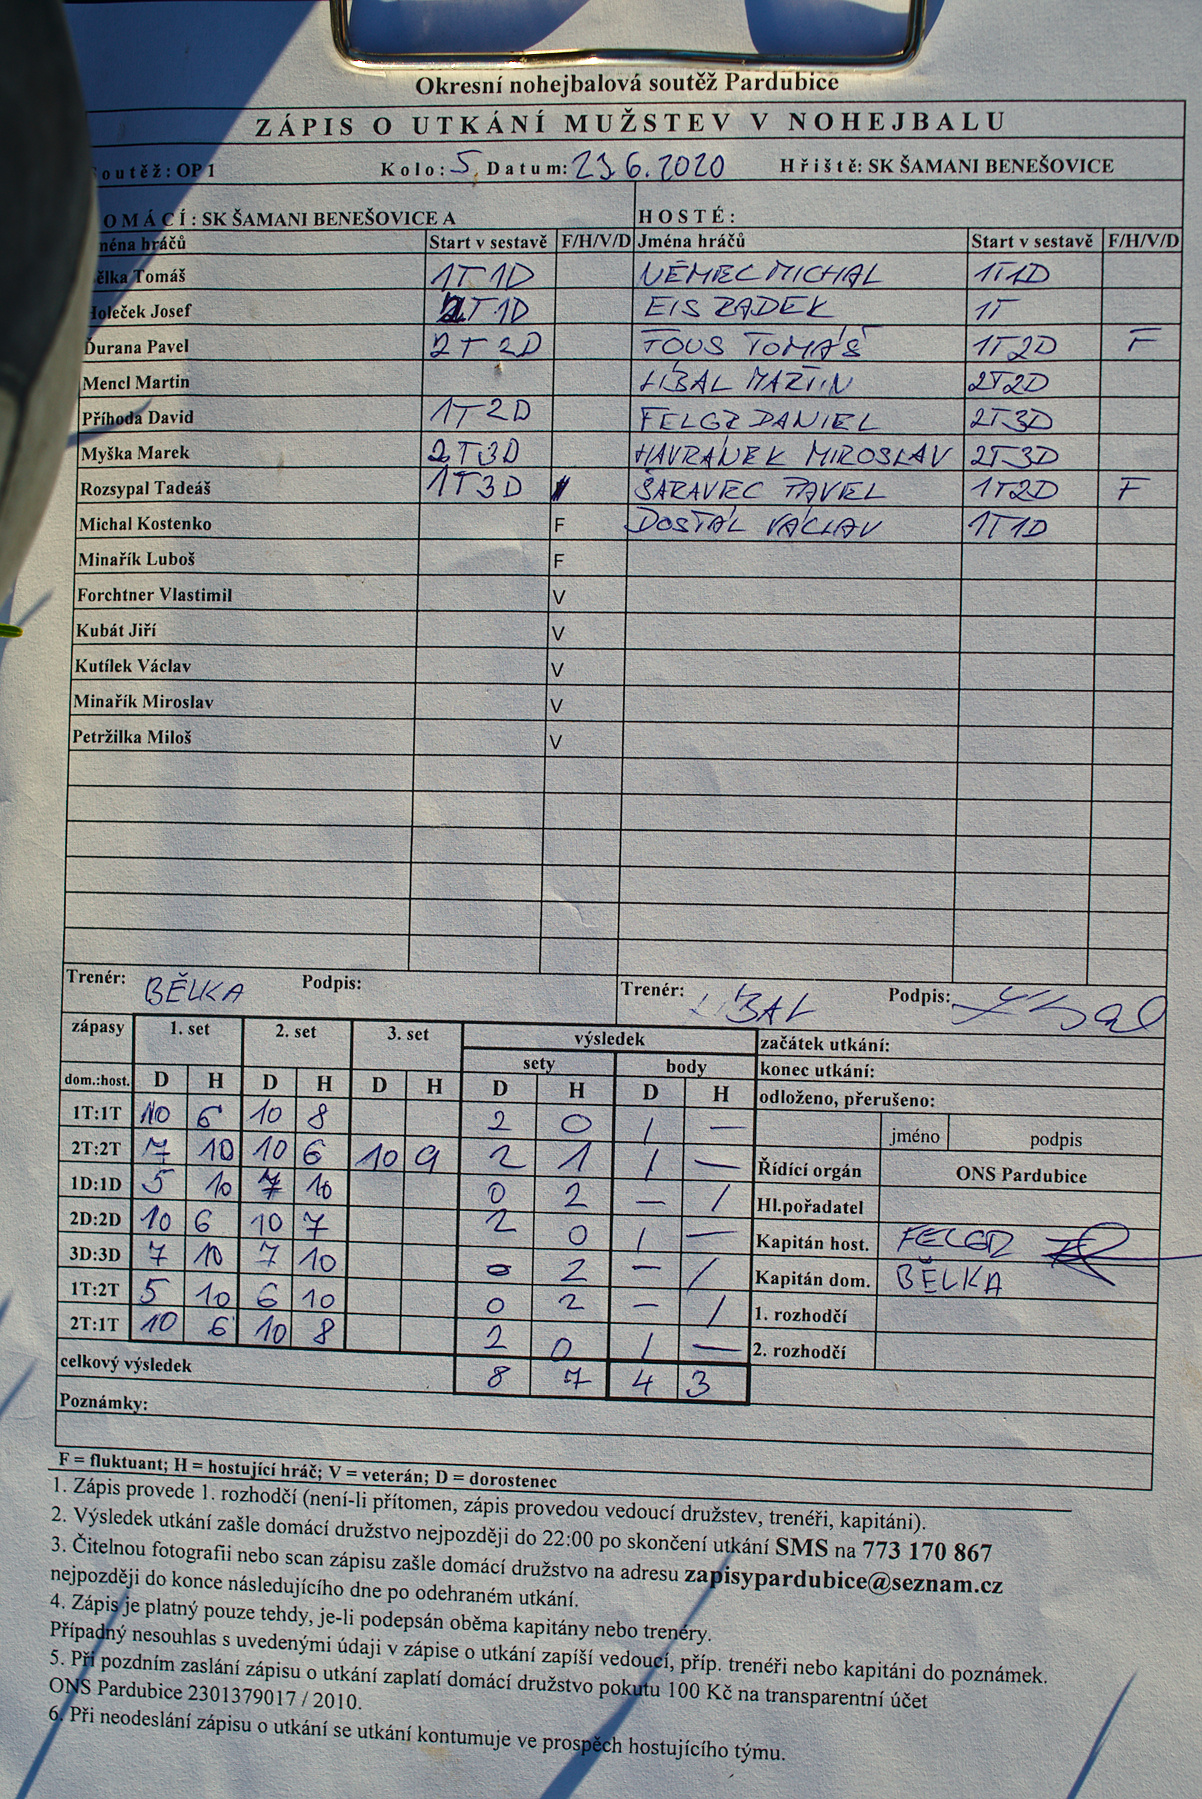 Okresní nohejbalová soutěž Pardubice
ZÁPIS O UTKÁNÍ MUŽSTEV V NOHEJBALU
outěž: OP 1 Kolo: 5. Datum: 23.6.2020 Hřiště: SK ŠAMANI BENEŠOVICE
OMÁCÍ: SK ŠAMANI BENEŠOVICE A HOSTÉ:
ména hráčů Start v sestavě F/H/V/D Jména hráčů Start v sestavě F/H/V/D
ělka Tomáš 1T 1D NĚMEC MICHAL 1T1D
Holeček Josef 2T 1D EIS RADEK 1T
Ďurana Pavel 2T 2D TOUS TOMÁŠ 1T2D F
Mencl Martin LÍBAL MARTIN 2T2D
Příhoda David 1T 2D FELGR DANIEL 2T3D
Myška Marek 2T3D HAVRÁNEK MIROSLAV 2T3D
Rozsypal Tadeáš 1T3D ŠARAVEC PAVEL 1T2D F
Michal Kostenko F DOSTÁL VÁCLAV 1T1D
Minařík Luboš F
Forchtner Vlastimil V
Kubát Jiří V
Kutílek Václav V
Minařík Miroslav V
Petržilka Miloš V
Trenér: BĚLKA Podpis: Trenér: LÍBAL Podpis: Líbal
zápasy 1. set 2. set 3. set výsledek začátek utkání:
sety body konec utkání:
dom.:host. D H D H D H D H D H odloženo, přerušeno:
1T:1T 10 6 10 8 2 0 1 — jméno podpis
2T:2T 7 10 10 6 10 9 2 1 1 — Řídící orgán ONS Pardubice
1D:1D 5 10 7 10 0 2 — 1 Hl.pořadatel
2D:2D 10 6 10 7 2 0 1 — Kapitán host. FELGR
3D:3D 7 10 7 10 0 2 — 1 Kapitán dom. BĚLKA
1T:2T 5 10 6 10 0 2 — 1 1. rozhodčí
2T:1T 10 6 10 8 2 0 1 — 2. rozhodčí
celkový výsledek 8 7 4 3
Poznámky:
F = fluktuant; H = hostující hráč; V = veterán; D = dorostenec
1. Zápis provede 1. rozhodčí (není-li přítomen, zápis provedou vedoucí družstev, trenéři, kapitáni).
2. Výsledek utkání zašle domácí družstvo nejpozději do 22:00 po skončení utkání SMS na 773 170 867
3. Čitelnou fotografii nebo scan zápisu zašle domácí družstvo na adresu zapisypardubice@seznam.cz
nejpozději do konce následujícího dne po odehraném utkání.
4. Zápis je platný pouze tehdy, je-li podepsán oběma kapitány nebo trenéry.
Případný nesouhlas s uvedenými údaji v zápise o utkání zapíší vedoucí, příp. trenéři nebo kapitáni do poznámek.
5. Při pozdním zaslání zápisu o utkání zaplatí domácí družstvo pokutu 100 Kč na transparentní účet
ONS Pardubice 2301379017 / 2010.
6. Při neodeslání zápisu o utkání se utkání kontumuje ve prospěch hostujícího týmu.